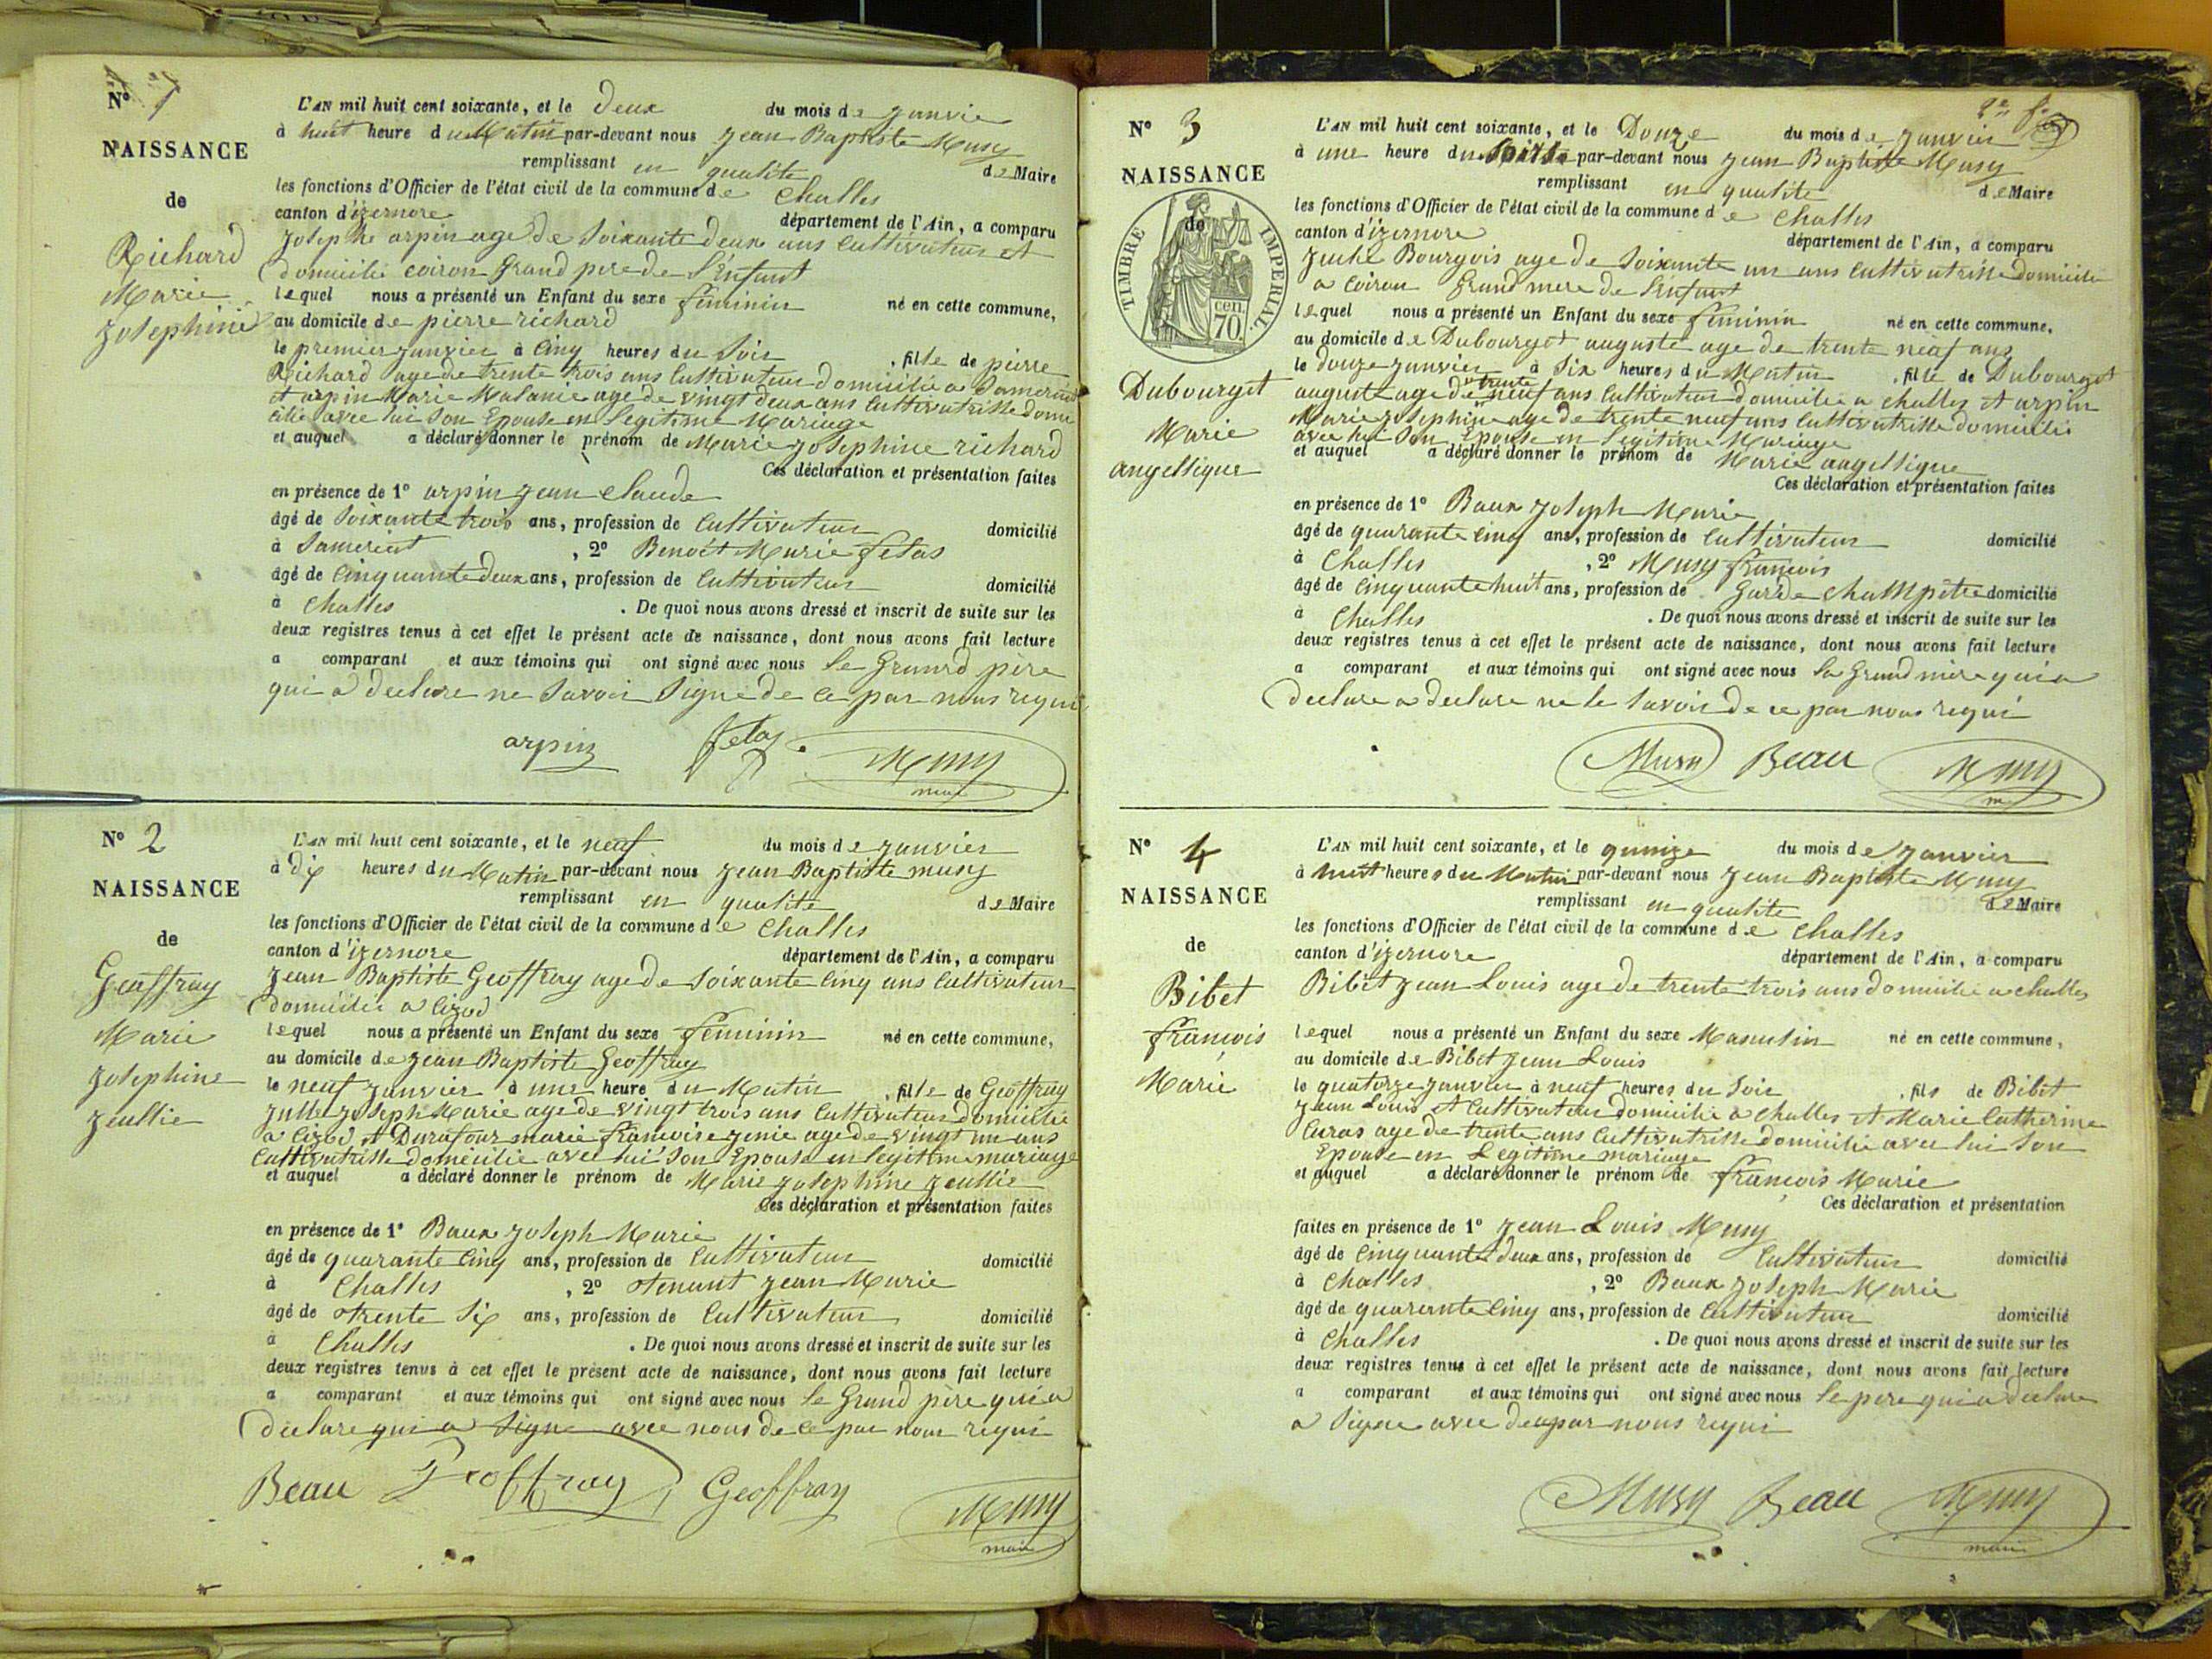 N° 1
NAISSANCE
de
Richard
Marie
Josephine
L'AN mil huit cent soixante, et le deux du mois de Janvier
à huit heure du Matin par-devant nous Jean Baptiste Musy
remplissant en qualité de Maire
les fonctions d'Officier de l'état civil de la commune de Challes
canton d'izernore département de l'Ain, a comparu
Josephe arpin age de Soixante deux ans Cultivateur et
domicilié coiron Grand pere de l'Enfant
lequel nous a présenté un Enfant du sexe féminin né en cette commune,
au domicile de pierre richard
le premier Janvier à Cinq heures du Soir , fille de pierre
Richard age de trente trois ans Cultivateur domicilié a
et arpin Marie age de vingt deux ans Cultivatrisse domi
cilie avec lui Son Epouse en Legitime Mariage
et auquel a déclaré donner le prénom de Marie Josephine richard
Ces déclaration et présentation faites
en présence de 1° arpin Jean Claude
âgé de Soixante trois ans, profession de Cultivateur domicilié
à Sameriat , 2° Benoit Marie felas
âgé de Cinquante deux ans, profession de Cultivateur domicilié
à Challes . De quoi nous avons dressé et inscrit de suite sur les
deux registres tenus à cet effet le présent acte de naissance, dont nous avons fait lecture
a comparant et aux témoins qui ont signé avec nous le Grand père
qui a declare ne Savoir Signe de ce par nous requi
arpin felas Musy
maire
N° 2
NAISSANCE
de
Geoffray
Marie
Josephine
Jeullie
L'AN mil huit cent soixante, et le neuf du mois de Janvier
à dix heures du Matin par-devant nous Jean Baptiste musy
remplissant en qualité de Maire
les fonctions d'Officier de l'état civil de la commune de Challes
canton d'izernore département de l'Ain, a comparu
Jean Baptiste Geoffray age de Soixante Cinq ans Cultivateur
domicilié a Cizod
lequel nous a présenté un Enfant du sexe féminin né en cette commune,
au domicile de Jean Baptiste Geoffray
le neuf Janvier à une heure du Matin , fille de Geoffray
Joseph Marie age de vingt trois ans Cultivateur domicilié
a Cizod et Durafour marie francoise age de vingt un ans
Cultivatrisse domicilié avec lui Son Epouse en legitime mariage
et auquel a déclaré donner le prénom de Marie Josephine Jeullie
Ces déclaration et présentation faites
en présence de 1° Baux Joseph Marie
âgé de quarante Cinq ans, profession de Cultivateur domicilié
à Challes , 2° tenant Jean Marie
âgé de trente Six ans, profession de Cultivateur domicilié
à Challes . De quoi nous avons dressé et inscrit de suite sur les
deux registres tenus à cet effet le présent acte de naissance, dont nous avons fait lecture
a comparant et aux témoins qui ont signé avec nous le Grand père qui a
declare qui a Signe avec nous de ce par nous requi
Beau Geoffray Geoffray Musy
maire
N° 3
NAISSANCE
de
TIMBRE IMPERIAL
70 cen
Dubourgot
Marie
angellique
L'AN mil huit cent soixante, et le Douze du mois de Janvier
à une heure du Soir par-devant nous Jean Baptiste Musy
remplissant en qualité de Maire
les fonctions d'Officier de l'état civil de la commune de Challes
canton d'izernore département de l'Ain, a comparu
Bourgois age de Soixante un ans Cultivatrisse domicilie
a Coiron Grand mere de l'Enfant
lequel nous a présenté un Enfant du sexe féminin né en cette commune,
au domicile de Dubourgot auguste age de trente neuf ans
le douze Janvier à Six heures du Matin , fille de Dubourgot
auguste age de trente neuf ans Cultivateur domicilie a challes et arpin
Marie Josephine age de trente neuf ans Cultivatrisse domicilié
avec lui Son Epouse en Legitime Mariage
et auquel a déclaré donner le prénom de Marie angellique
Ces déclaration et présentation faites
en présence de 1° Baux Joseph Marie
âgé de quarante cinq ans, profession de Cultivateur domicilié
à Challes , 2° Musy francois
âgé de Cinquante huit ans, profession de Garde Champêtre domicilié
à Challes . De quoi nous avons dressé et inscrit de suite sur les
deux registres tenus à cet effet le présent acte de naissance, dont nous avons fait lecture
a comparant et aux témoins qui ont signé avec nous la Grand mère qui a
declare a declare ne le Savoir de ce par nous requi
Musy Beau Musy
N° 4
NAISSANCE
de
Bibet
francois
Marie
L'AN mil huit cent soixante, et le quinize du mois de Janvier
à huit heures du Matin par-devant nous Jean Baptiste Musy
remplissant en qualité de Maire
les fonctions d'Officier de l'état civil de la commune de Challes
canton d'izernore département de l'Ain, a comparu
Bibet Jean Louis age de trente trois ans domicilie a challes
lequel nous a présenté un Enfant du sexe Masculin né en cette commune,
au domicile de Bibet Jean Louis
le quatorze Janvier à neuf heures du Soir , fils de Bibet
Jean Louis et Cultivateur domicilie a Challes et Marie Catherine
Curas age de trente ans Cultivatrisse domicilié avec lui Son
Epouse en Legitime mariage
et auquel a déclaré donner le prénom de francois Marie
Ces déclaration et présentation
faites en présence de 1° Jean Louis Musy
âgé de Cinquante deux ans, profession de Cultivateur domicilié
à Challes , 2° Baux Joseph Marie
âgé de quarante Cinq ans, profession de Cultivateur domicilié
à Challes . De quoi nous avons dressé et inscrit de suite sur les
deux registres tenus à cet effet le présent acte de naissance, dont nous avons fait lecture
a comparant et aux témoins qui ont signé avec nous le pere qui a declare
a Signe avec de ce par nous requi
Musy Beau Musy
maire